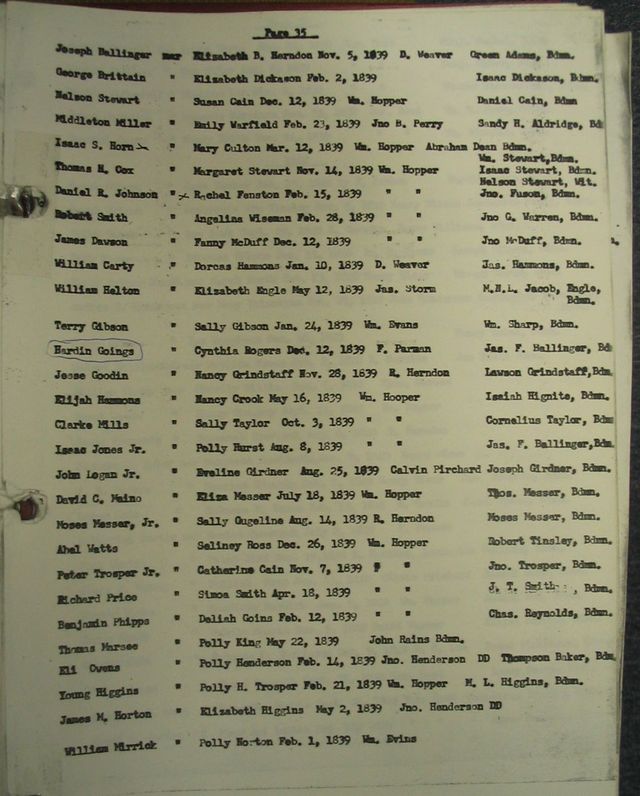 Page 35
Joseph Ballinger mar Elizabeth B. Herndon Nov. 5, 1839 D. Weaver Green Adams, Bdmn.
George Brittain " Elizabeth Dickason Feb. 2, 1839 Isaac Dickason, Bdmn.
Nelson Stewart " Susan Cain Dec. 12, 1839 Wm. Hopper Daniel Cain, Bdmn
Middleton Miller " Emily Warfield Feb. 23, 1839 Jno B. Perry Sandy H. Aldridge, Bd
Isaac S. Horn " Mary Culton Mar. 12, 1839 Wm. Hopper Abraham Dean Bdmn.
Wm. Stewart, Bdmn.
Thomas H. Cox " Margaret Stewart Nov. 14, 1839 Wm. Hopper Isaac Stewart, Bdmn.
Nelson Stewart, Wit.
Daniel R. Johnson " x Rachel Fenston Feb. 15, 1839 " " Jno. Fuson, Bdmn.
Robert Smith " Angelina Wiseman Feb. 28, 1839 " " Jno G. Warren, Bdmn.
James Dawson " Fanny McDuff Dec. 12, 1839 " " Jno McDuff, Bdmn.
William Carty " Dorcas Hammons Jan. 10, 1839 D. Weaver Jas. Hammons, Bdmn.
William Helton " Elizabeth Engle May 12, 1839 Jas. Storm M.H.L. Jacob, Engle,
Bdmn.
Terry Gibson " Sally Gibson Jan. 24, 1839 Wm. Evans Wm. Sharp, Bdmn.
Hardin Goings " Cynthia Rogers Dec. 12, 1839 F. Parman Jas. F. Ballinger, Bd
Jesse Goodin " Nancy Grindstaff Nov. 28, 1839 R. Herndon Lawson Grindstaff, Bdm
Elijah Hammons " Nancy Crook May 16, 1839 Wm. Hooper Isaiah Hignite, Bdmn.
Clarke Mills " Sally Taylor Oct. 3, 1839 " " Cornelius Taylor, Bdm
Isaac Jones Jr. " Polly Hurst Aug. 8, 1839 " " Jas. F. Ballinger, Bdm
John Logan Jr. " Eveline Girdner Aug. 25, 1839 Calvin Pirchard Joseph Girdner, Bdmn.
David C. Maino " Eliza Messer July 18, 1839 Wm. Hopper Thos. Messer, Bdmn.
Moses Messer, Jr. " Sally Gugeline Aug. 14, 1839 R. Herndon Moses Messer, Bdmn.
Abel Watts " Seliney Ross Dec. 26, 1839 Wm. Hopper Robert Tinsley, Bdmn.
Peter Trosper Jr. " Catherine Cain Nov. 7, 1839 " " Jno. Trosper, Bdmn.
Richard Price " Simoa Smith Apr. 18, 1839 " " J. T. Smith, Bdmn.
Benjamin Phipps " Deliah Goins Feb. 12, 1839 " " Chas. Reynolds, Bdmn.
Thomas Marsee " Polly King May 22, 1839 John Rains Bdmn.
Eli Owens " Polly Henderson Feb. 14, 1839 Jno. Henderson DD Thompson Baker, Bdm
Young Higgins " Polly H. Trosper Feb. 21, 1839 Wm. Hopper M. L. Higgins, Bdmn.
James M. Horton " Elizabeth Higgins May 2, 1839 Jno. Henderson DD
William Mirrick " Polly Horton Feb. 1, 1839 Wm. Evins